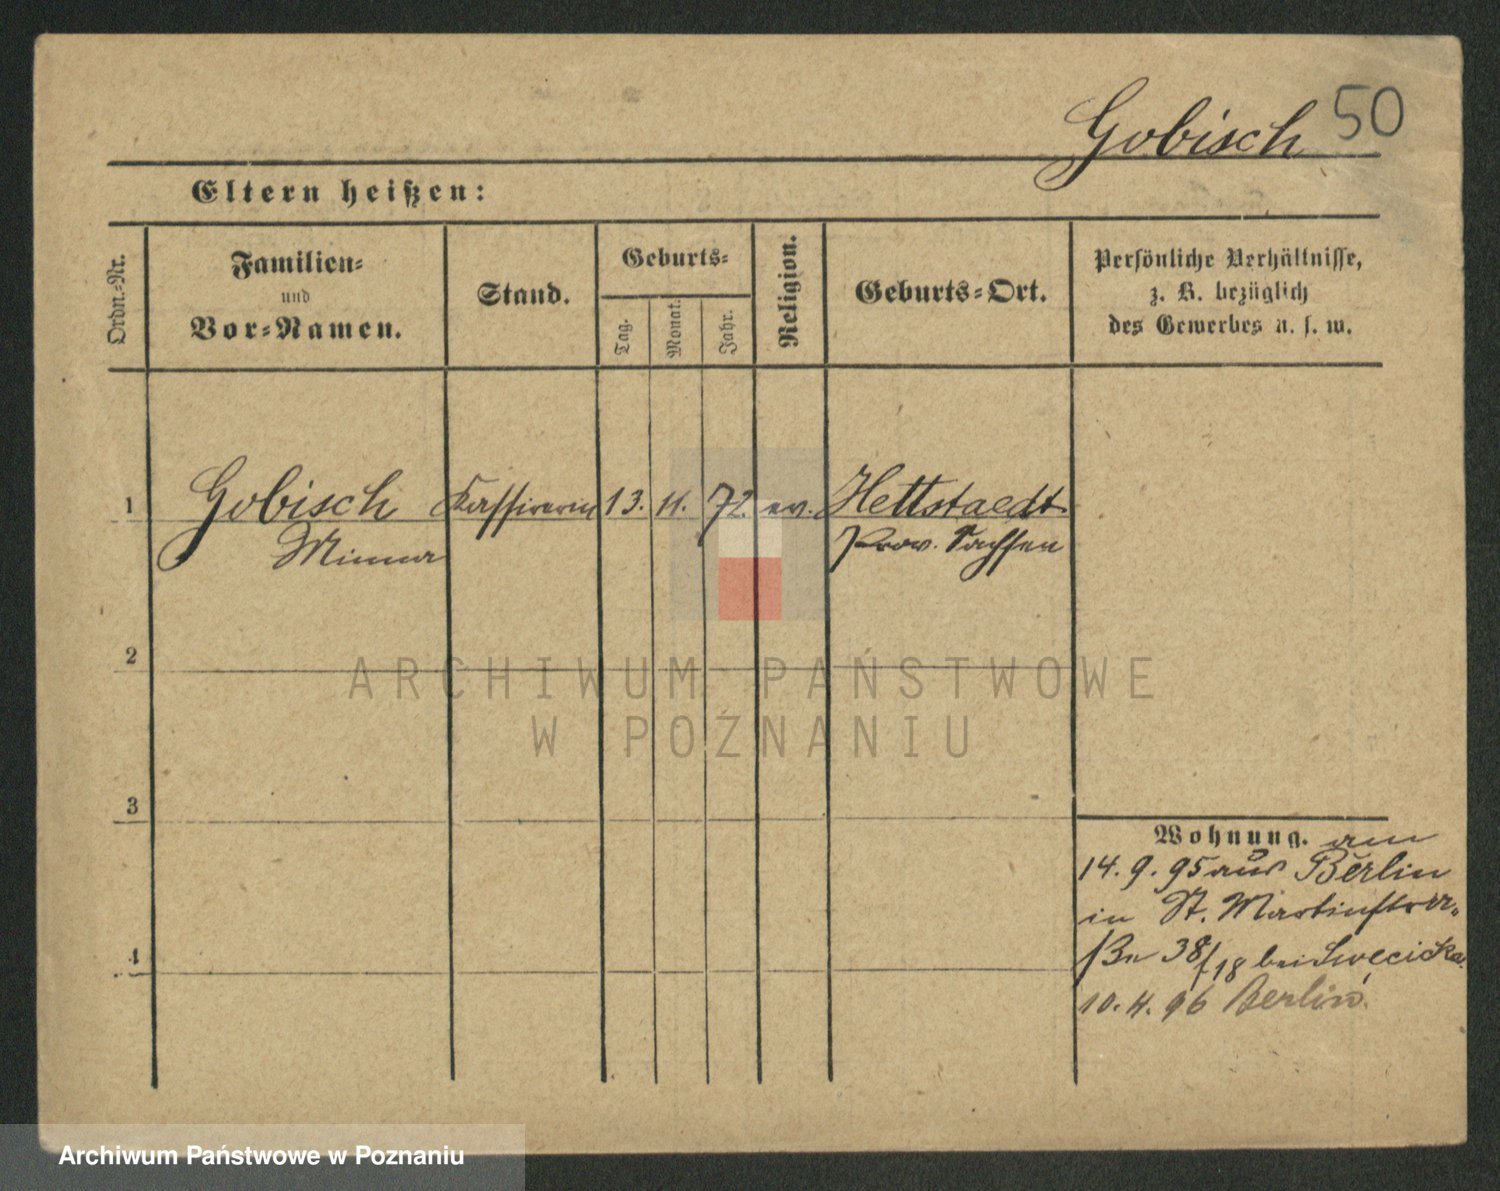 Gobisch 50
Eltern heißen:
Ordn.-Nr.
Familien-
und
Vor-Namen.
Stand.
Geburts-
Tag.
Monat.
Jahr.
Religion.
Geburts-Ort.
Persönliche Verhältnisse,
z. B. bezüglich
des Gewerbes u. s. w.
1 Gobisch Kassirerin 13. 11. 72. ev. Hettstaedt
Minna Prov. Sachsen
2
3
4
Wohnung. am
14.9.95 aus Berlin
in St. Martinstra-
ße 38/18 bei Swecicka.
10.4.96 Berlin.
ARCHIWUM PAŃSTWOWE
W POZNANIU
Archiwum Państwowe w Poznaniu